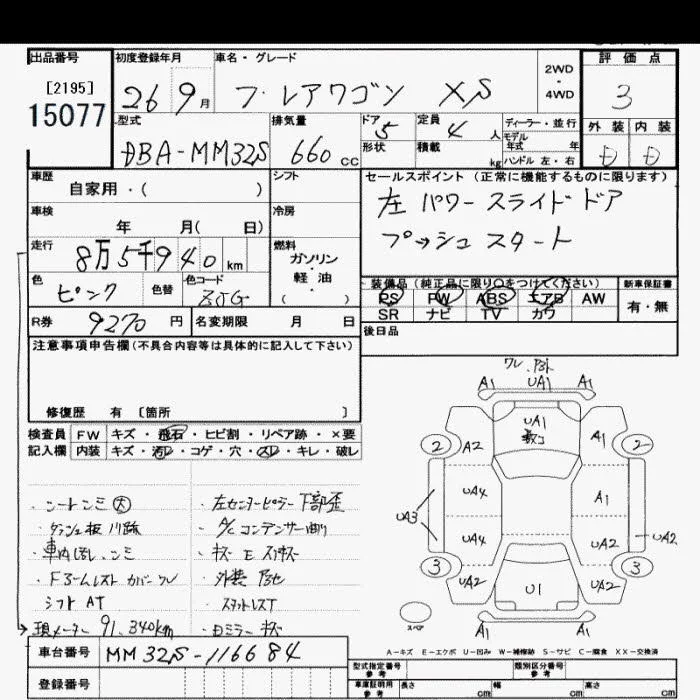 出品番号 初度登録年月 車名・グレード 2WD・4WD 評価点
[2195] 15077 26 9月 フレアワゴン XS 3
型式 排気量 ドア 定員 ディーラー・並行 外装 内装
DBA-MM32S 660cc 5 4人 モデル年式 年 D D
形状 積載 kg ハンドル 左・右
車歴 シフト セールスポイント (正常に機能するものに限ります)
自家用・( )
左 パワースライドドア
車検 冷房
年 月( 日)
プッシュスタート
走行 燃料
8万5千940km ガソリン・軽油・( )
色 色替 色コード
ピンク ZJG
装備品(純正品に限り○をつけてください) 新車保証書
PS PW ABS エアB AW 有・無
SR ナビ TV カワ
R券 9270円 名変期限 月 日
後日品
注意事項申告欄(不具合内容等は具体的に記入して下さい)
修復歴 有 [箇所 ]
検査員 FW キズ・飛石・ヒビ割・リペア跡・×要
記入欄 内装 キズ・汚レ・コゲ・穴・スレ・キレ・破レ
・シートシミ大 ・左センターピラー下部歪
・A/Cコンデンサー曲り
・車内 シミ
・外装
シフト AT
現メーター 91,340km ・白ミラーキズ
A1 UA1 A1
UA1
2 A2 A1 2
UA3 UA4 A1
UA4 UA2 UA2
3 UA2 UA2 3
U1
スペア A1 A1
A-キズ E-エクボ U-凹み W-補修跡 S-サビ C-腐食 XX-交換済
車台番号 MM32S-116684
登録番号
型式指定番号 参考 類別区分番号 参考
車庫証明用 参考 長さ cm 幅 cm 高さ cm